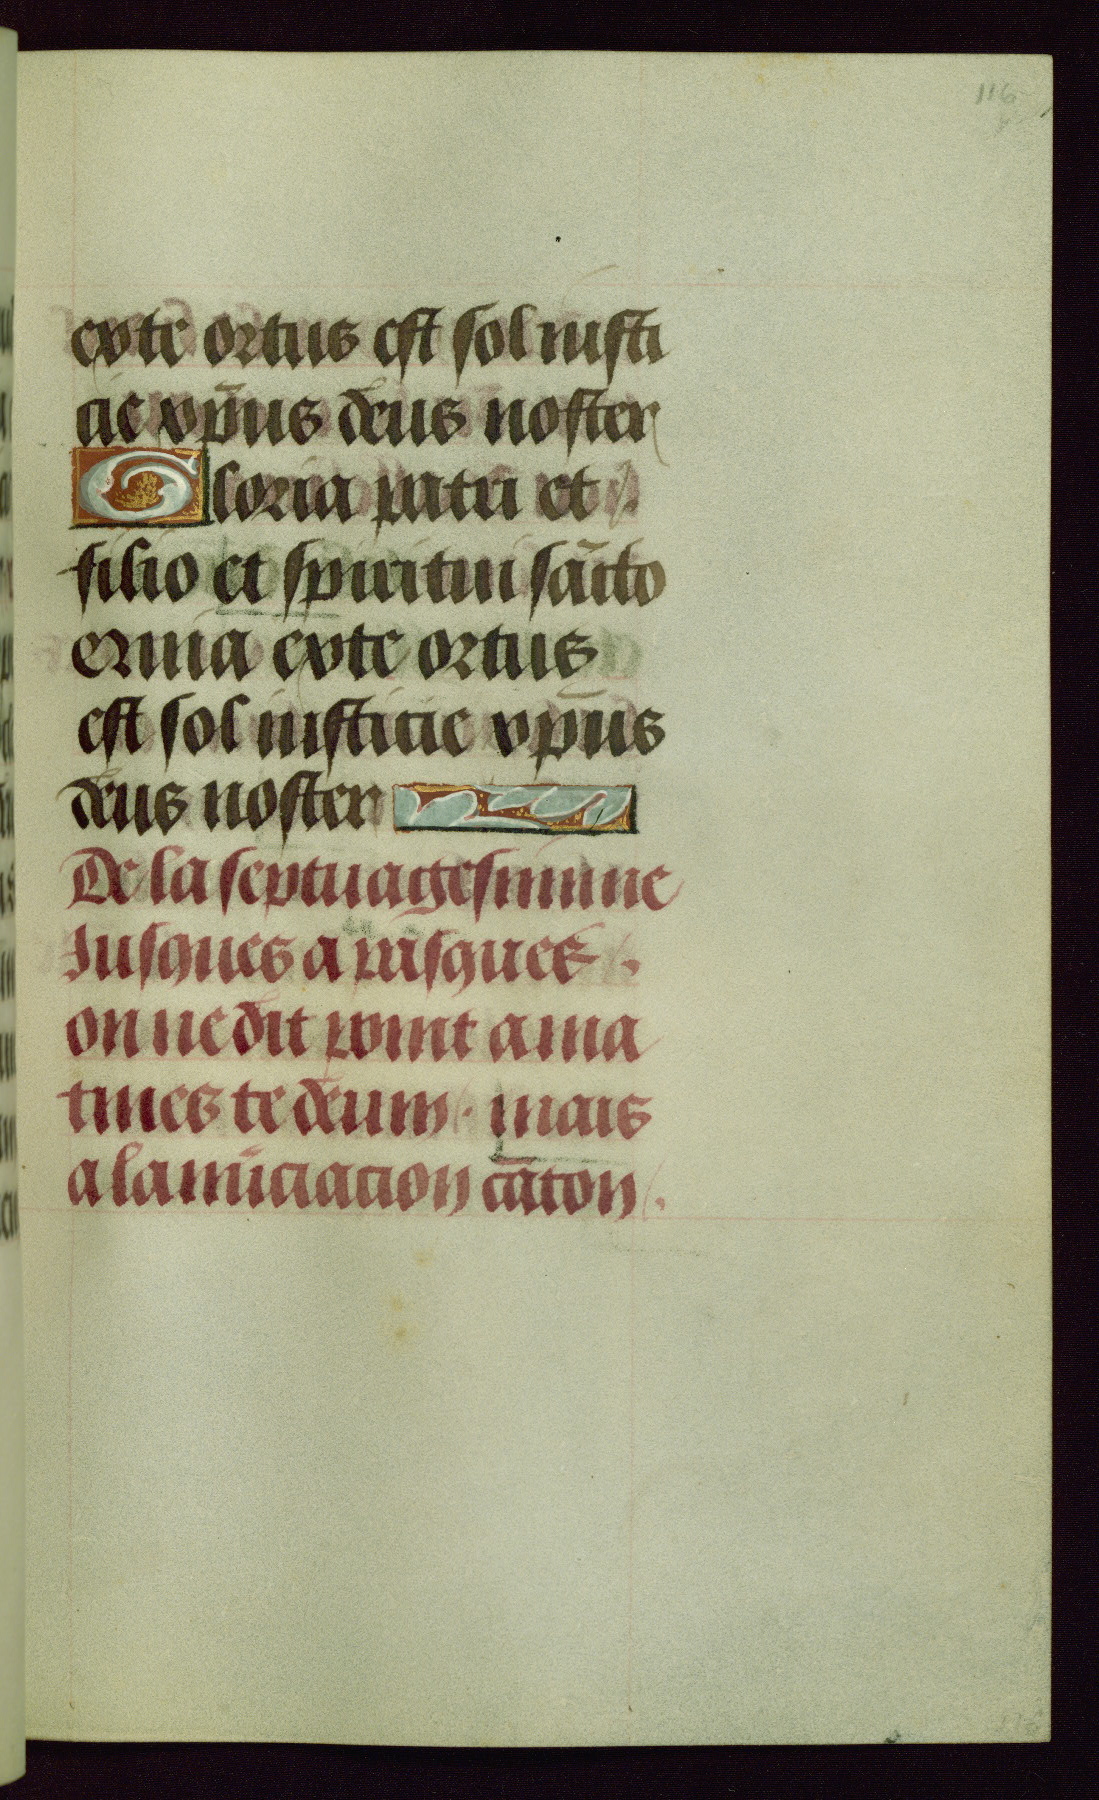 116
exte ortus est sol iusti
cie xp̄us deus noster
Gloria patri et
filio et spiritui sācto
Ex uia exte ortus
est sol iusticie xp̄us
deus noster
De la septuagesimme
Jusques a pasques.
on ne dit point a ma
tines te deum. mais
a la nūciacion cāton.